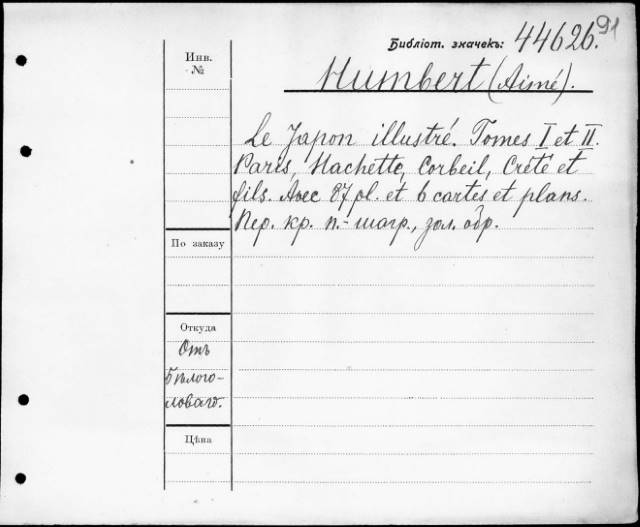 91
Библіот. значекъ: 44626.
Инв.
№
Humbert (Aimé).
Le Japon illustré. Tomes I et II.
Paris, Hachette, Corbeil, Crété et
fils. Avec 87 pl. et 6 cartes et plans.
Пер. кр. п.-шагр., зол. обр.
По заказу
Откуда
Отъ
Бѣлого-
ловаго.
Цѣна